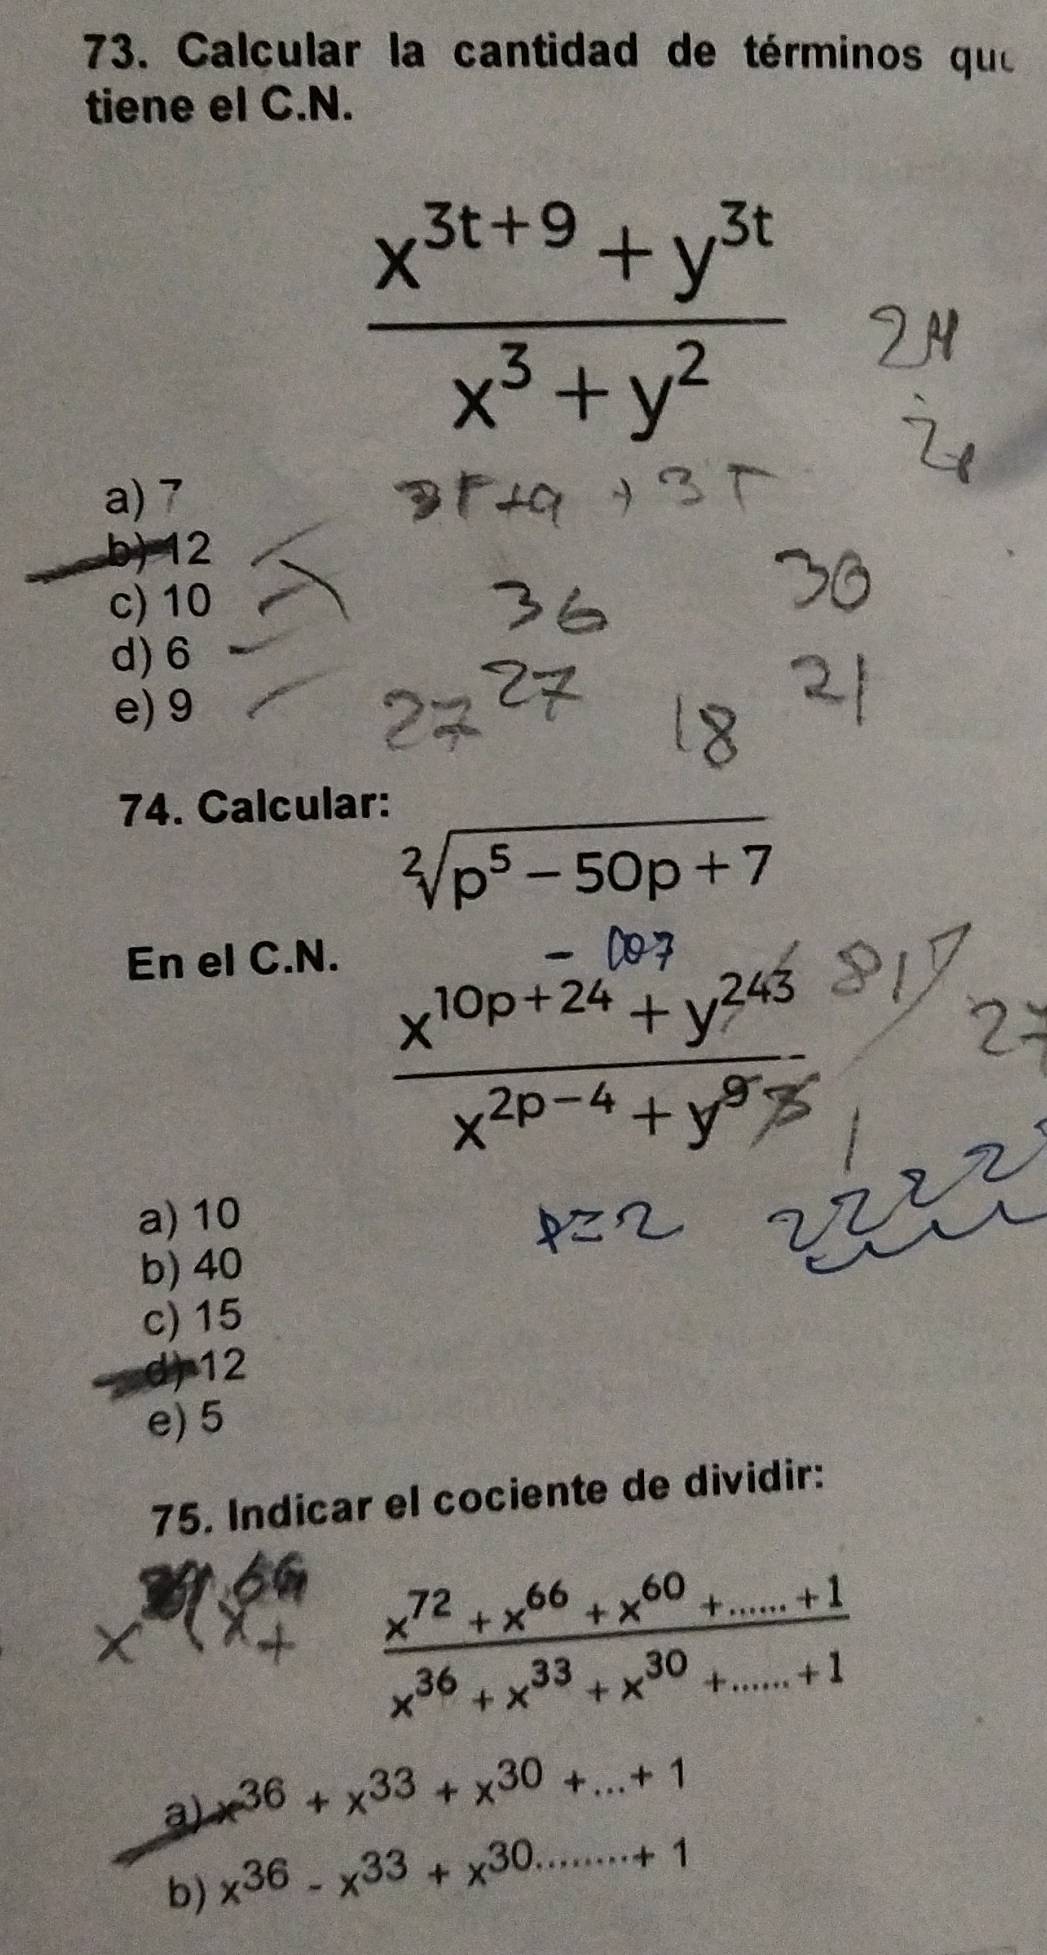 73. Calcular la cantidad de términos que
tiene el C.N.
x^{3t+9} + y^{3t}
x^3 + y^2
24
a) 7
3T+9 + 3T
b) 12
c) 10
36
30
d) 6
e) 9
27 27
18
21
74. Calcular:
\sqrt[2]{p^5 - 50p + 7}
En el C.N.
x^{10p+24} + y^{243}
81
27
x^{2p-4} + y^9
p=2
2 2 2 2 2
a) 10
b) 40
c) 15
d) 12
e) 5
75. Indicar el cociente de dividir:
x^{72} + x^{66} + x^{60} + ...... + 1
x^{36} + x^{33} + x^{30} + ...... + 1
a) x^{36} + x^{33} + x^{30} + ... + 1
b) x^{36} - x^{33} + x^{30} ......... + 1